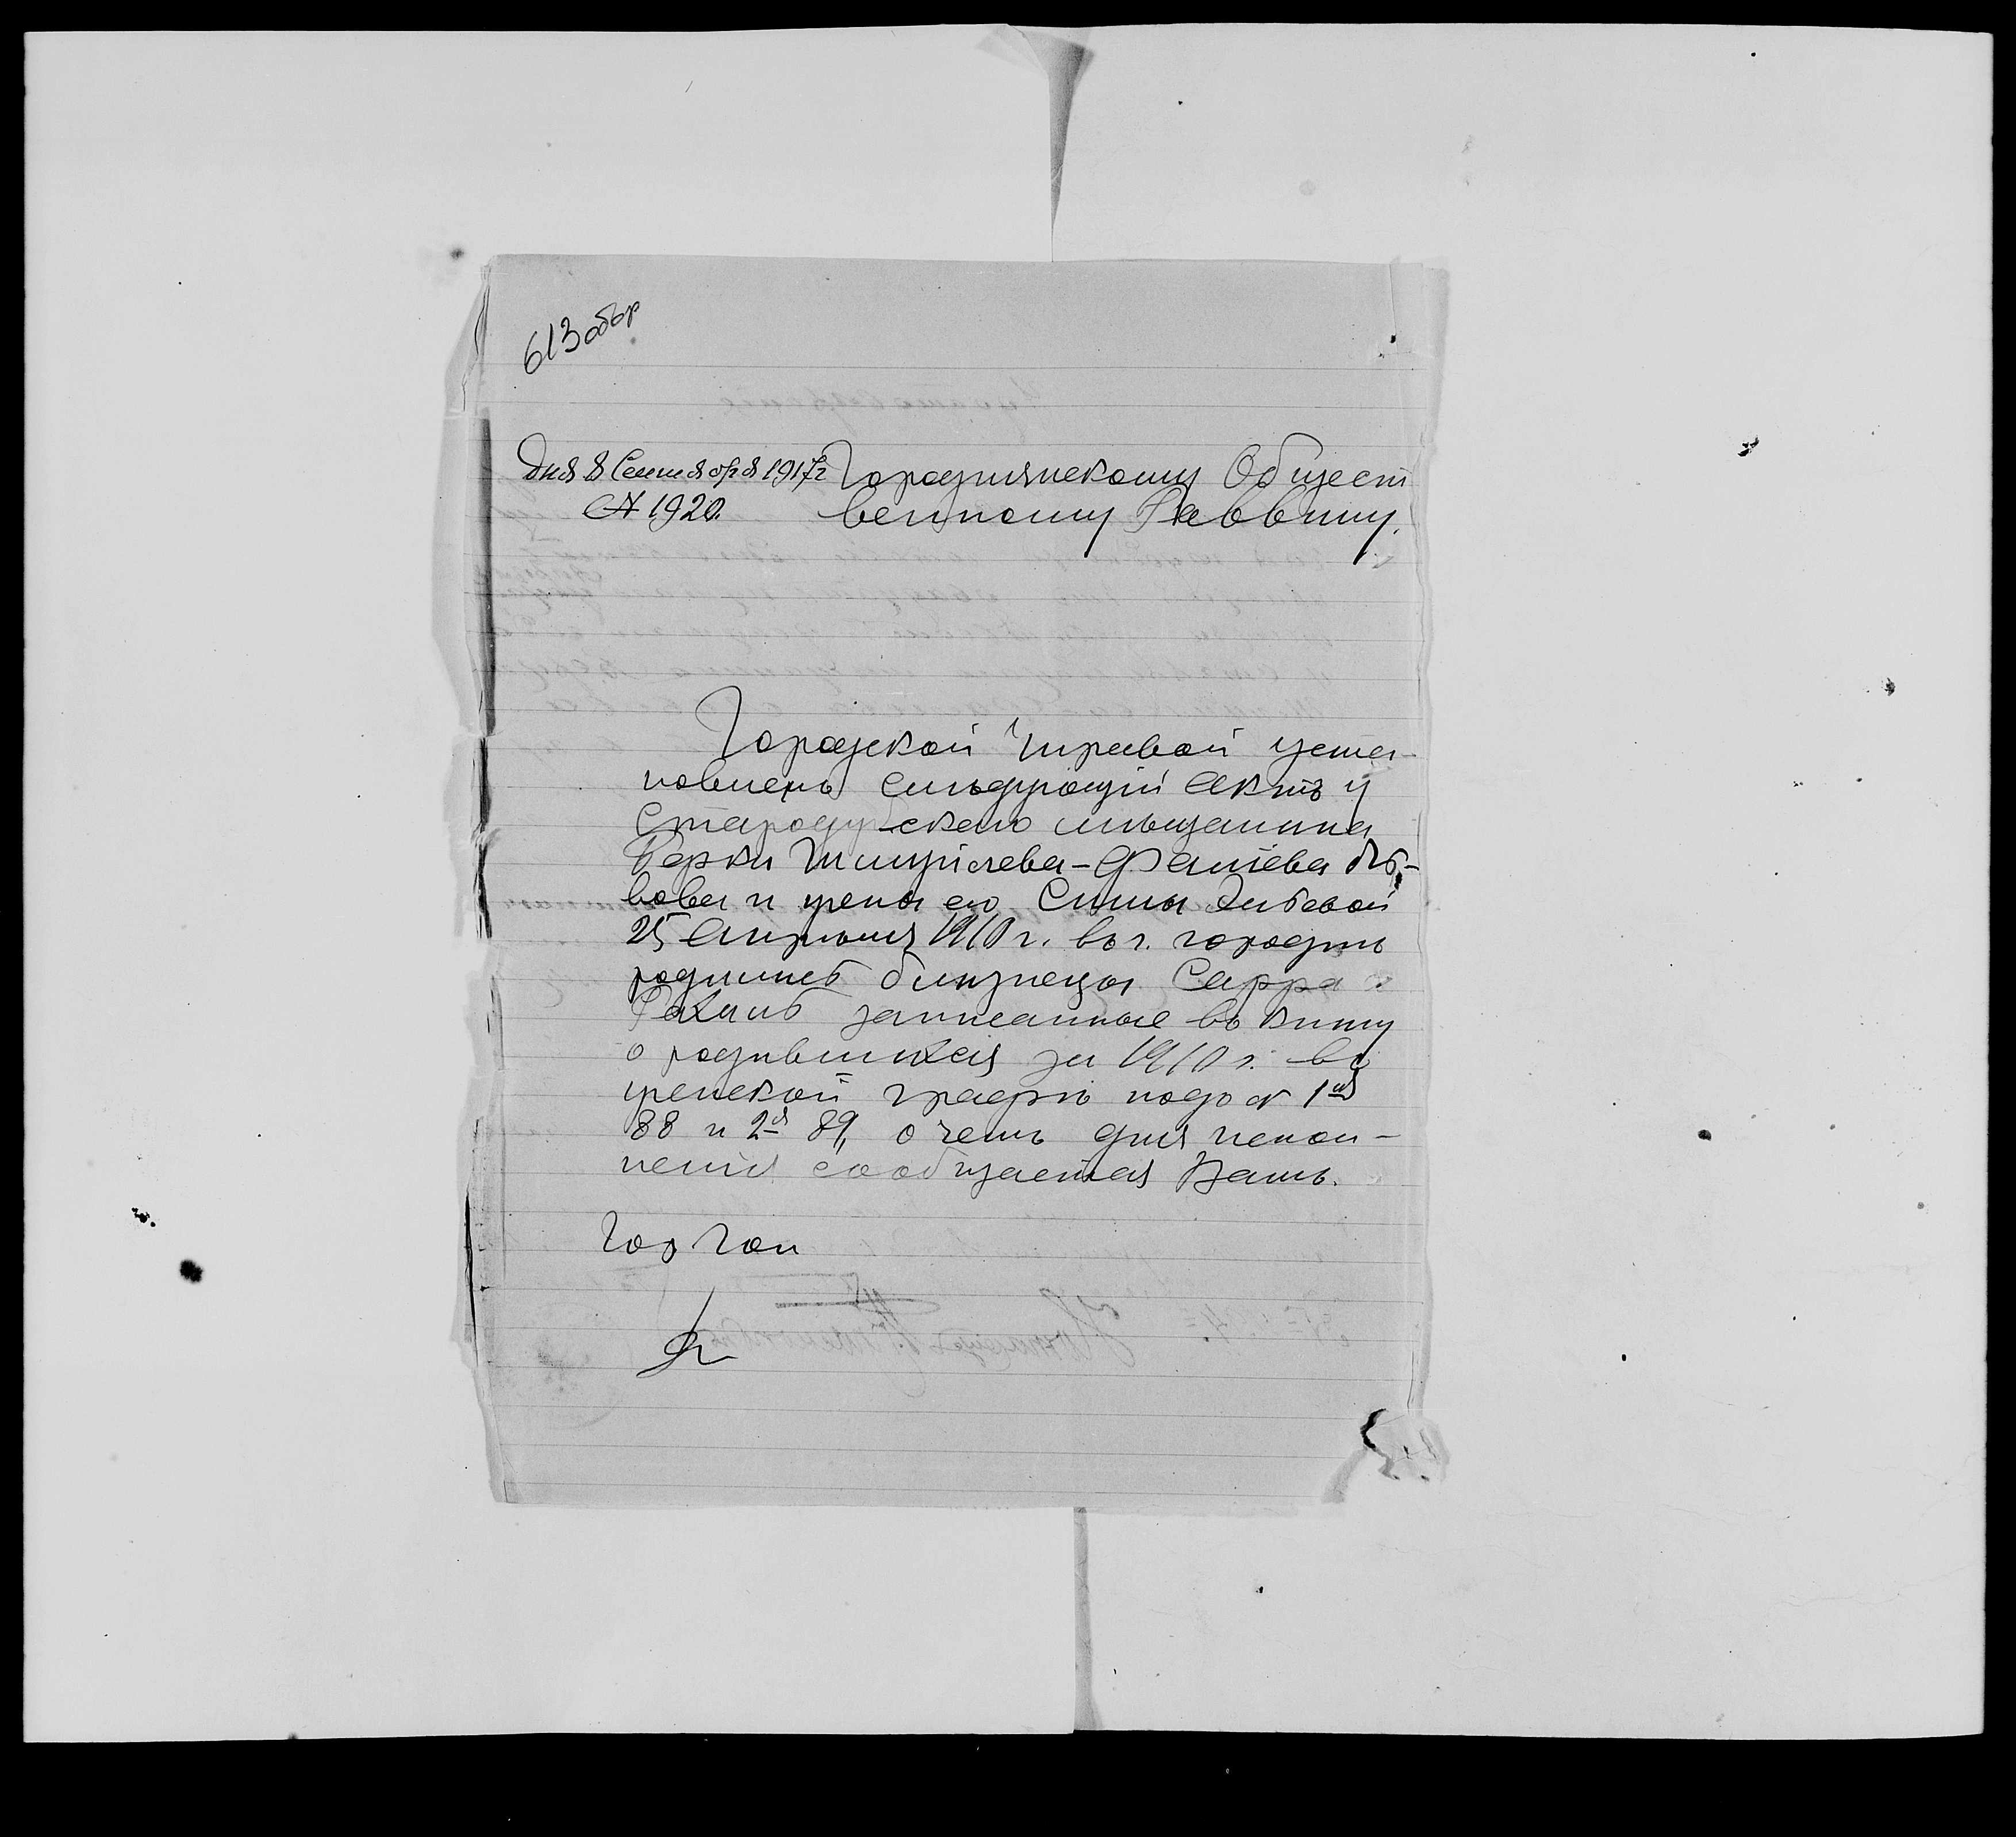 613 обор
Дня 8 Сентября 1917 г.
№ 1920.
Городнянскому Общест
венному Раввину.
Городской Управой уста-
новленъ слѣдующій актъ у
Стародубскаго мѣщанина
Берки Шмуйлева-Фалкева
вова и жены его Симы
25 Апрѣля 1910 г. въ г. Городнѣ
родились близнецы Сарра и
Рахиль записанные въ книгу
о родившихся за 1910 г. въ
женской графѣ подъ № 1я
88 и 2я 89, о чемъ для испол-
ненія сообщается Вамъ.
Гор Гол